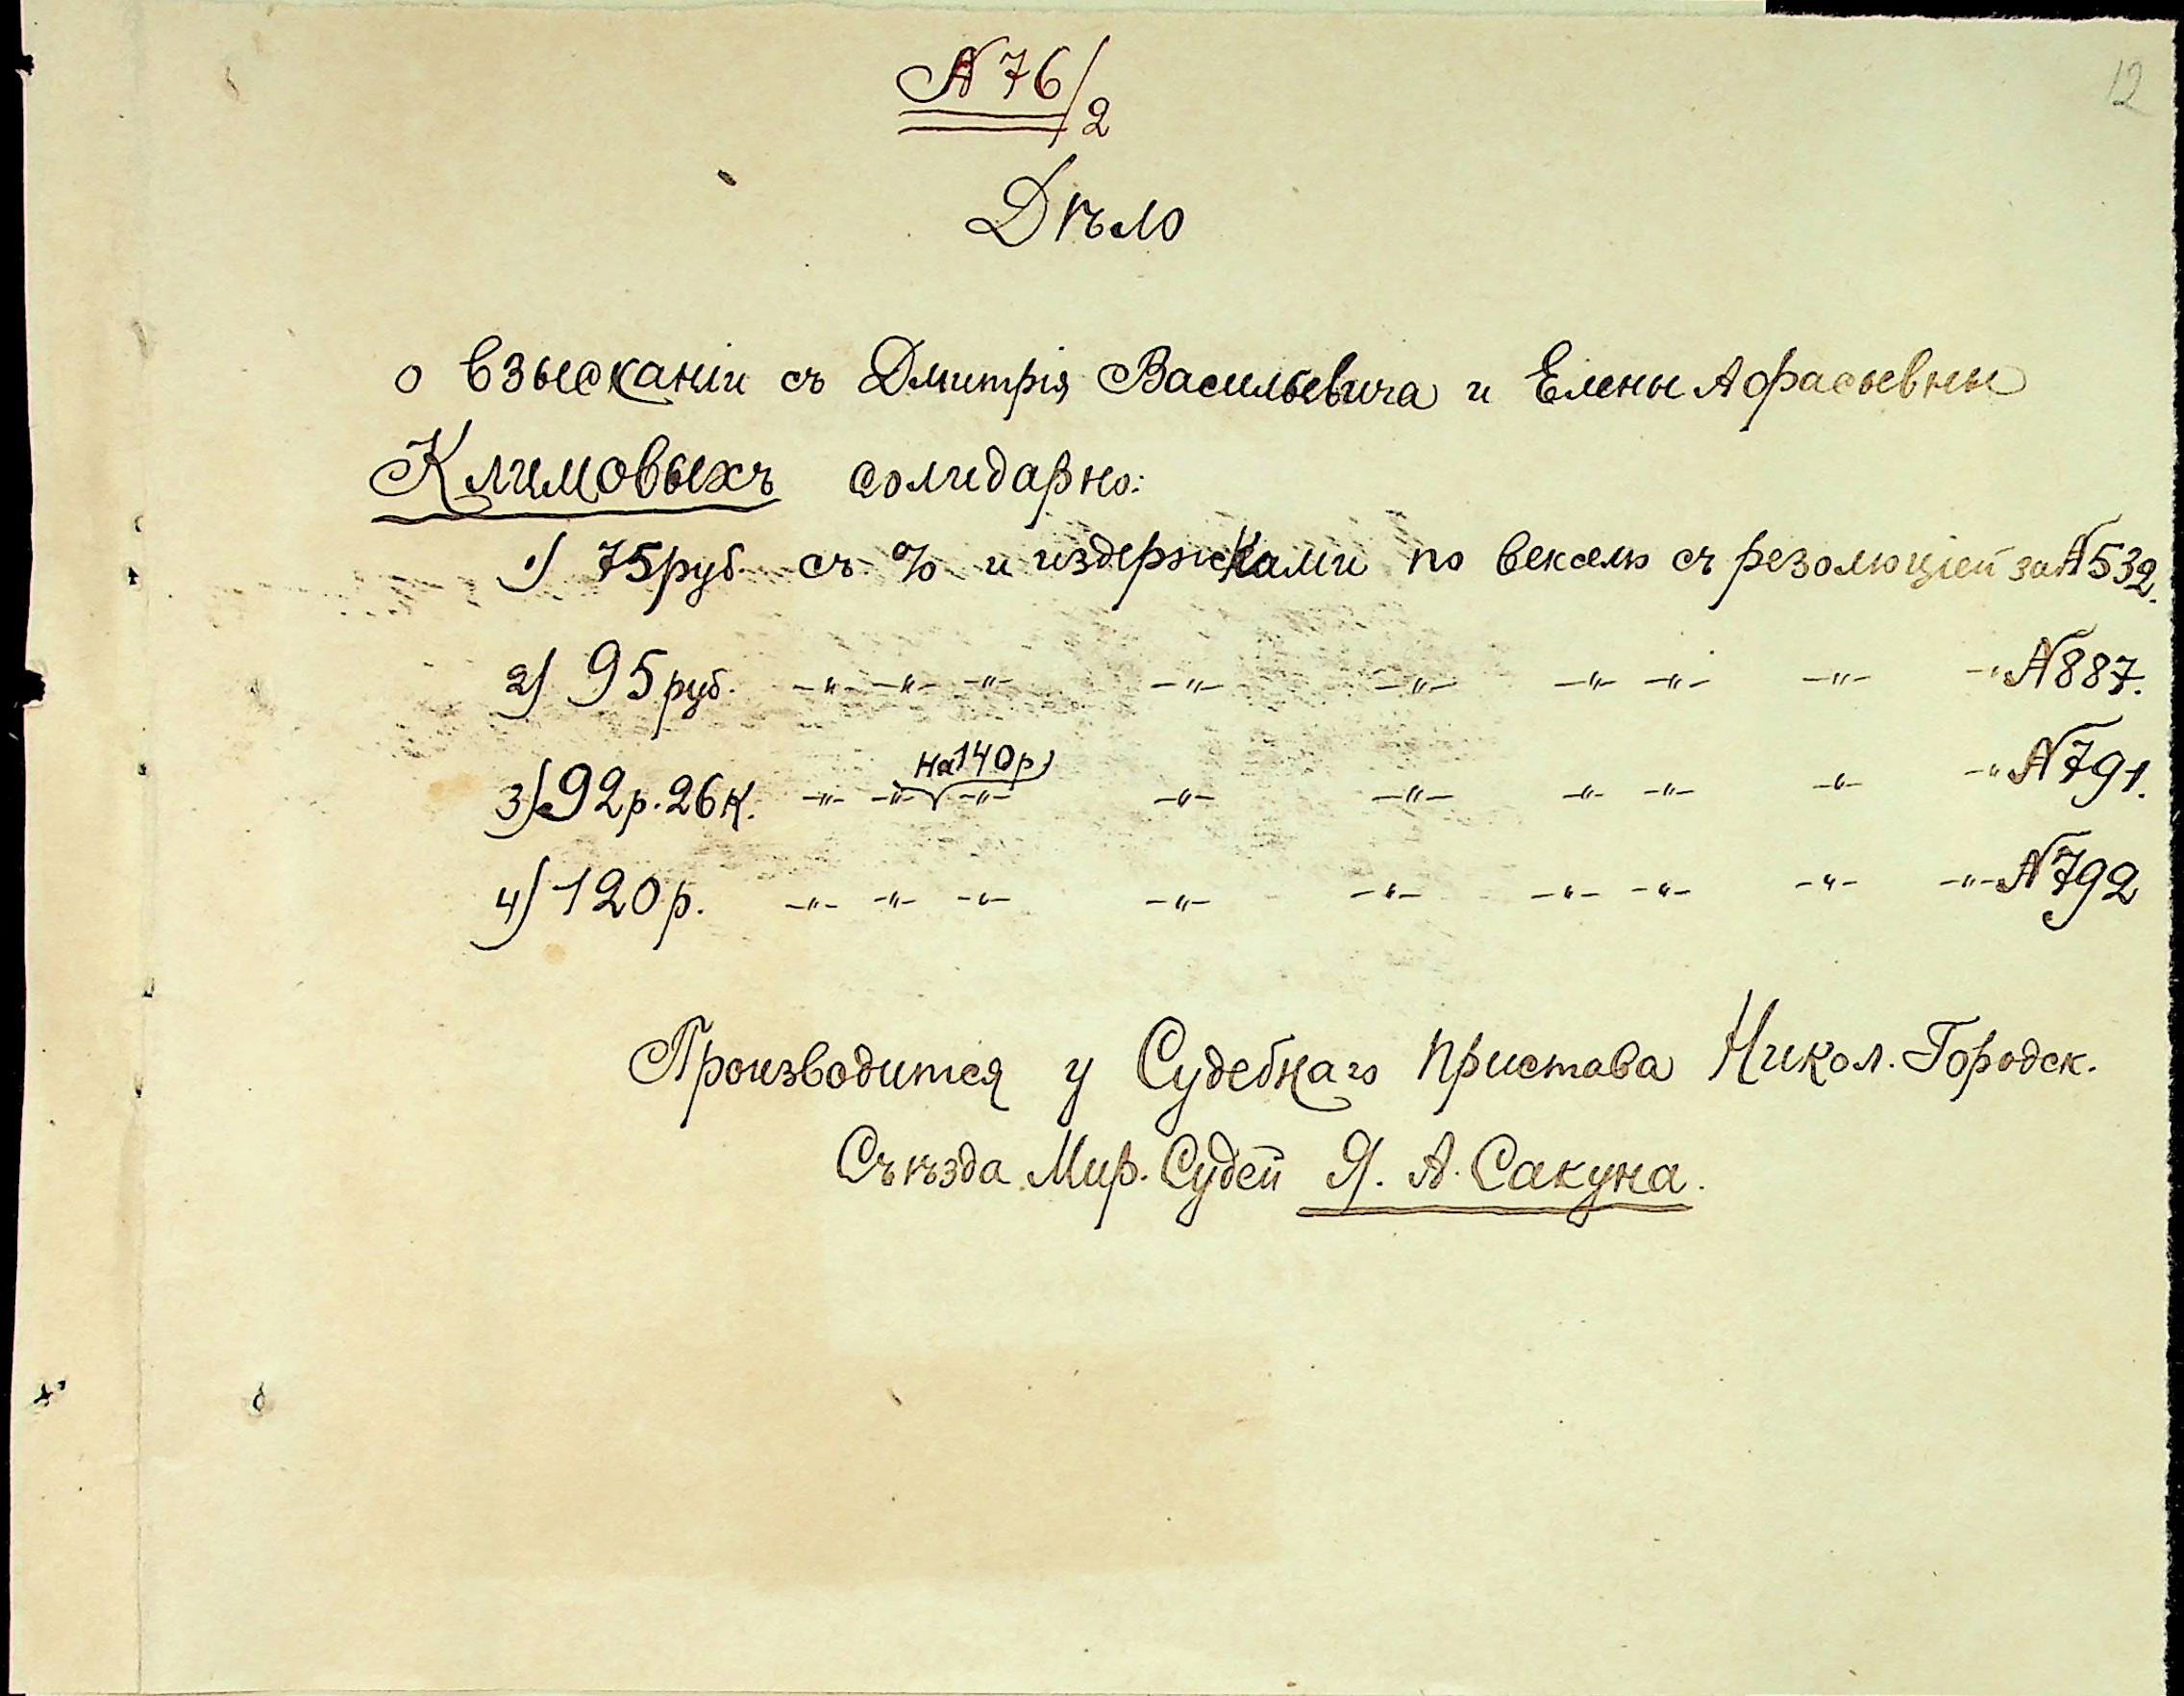 12
№ 76/2
Дѣло
о взысканіи съ Дмитрія Васильевича и Елены Афрасьевны
Климовыхъ солидарно:
1) 75 руб. съ % и издержками по векселю съ резолюціей за № 532.
2) 95 руб. -"- -"- -"- -"- -"- -"- -"- -"- -"- № 887.
на 140 р.
3) 92 р. 26 к. -"- -"- -"- -"- -"- -"- -"- -"- -"- № 791.
4) 120 р. -"- -"- -"- -"- -"- -"- -"- -"- -"- № 792
Производится у Судебнаго Пристава Никол. Городск.
Съѣзда Мир. Судей Я. А. Сакуна.